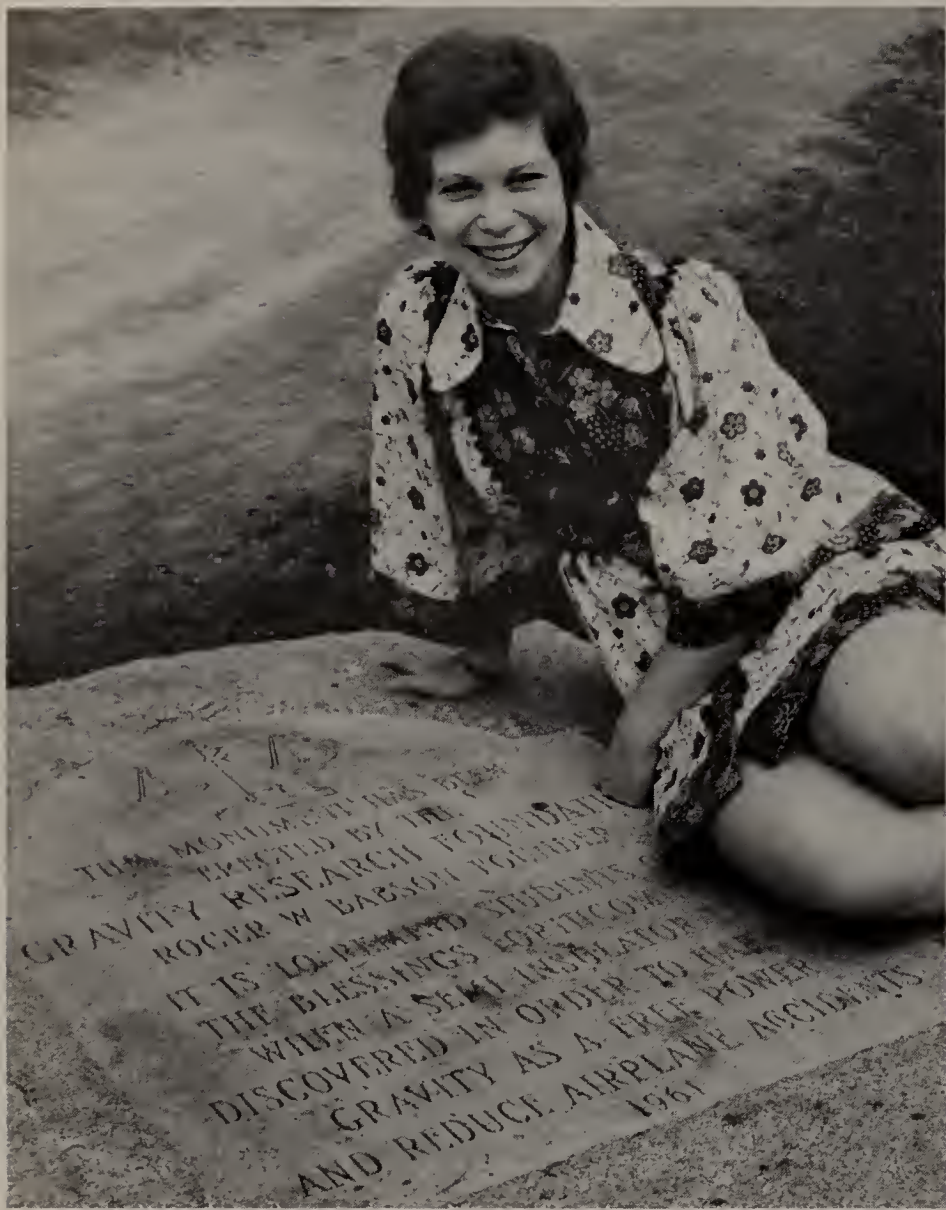 THIS MONUMENT HAS BEEN
ERECTED BY THE
GRAVITY RESEARCH FOUNDATI
ROGER W BABSON FOUNDER
IT IS TO REMIND STUDENTS
THE BLESSINGS FORTHCOM
WHEN A SEMI INSULATOR
DISCOVERED IN ORDER TO HA
GRAVITY AS A FREE POWER
AND REDUCE AIRPLANE ACCIDENTS
1961